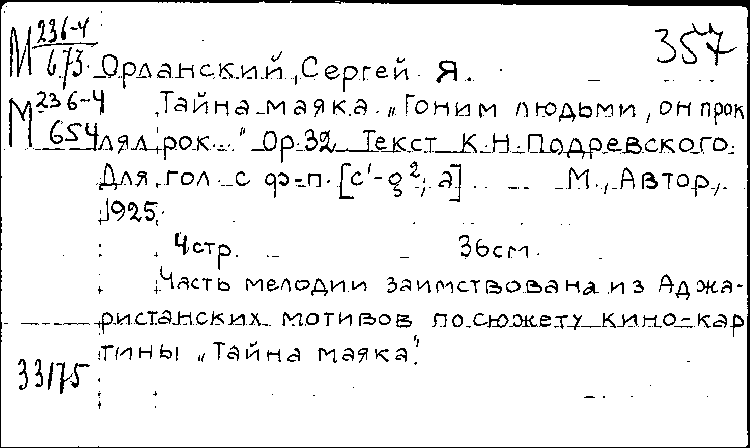 М 236-4
673
357
Орданский, Сергей Я.
М 236-4
654
Тайна маяка. „Гоним людьми, он прок
лял рок..." Ор.32. Текст К.Н.Подревского.
Для гол. с ф-п. [c'-g²; a] М., Автор,
1925.
4стр. 36см.
Часть мелодии заимствована из Аджа-
ристанских мотивов по сюжету кино-кар
тины „Тайна маяка".
33175